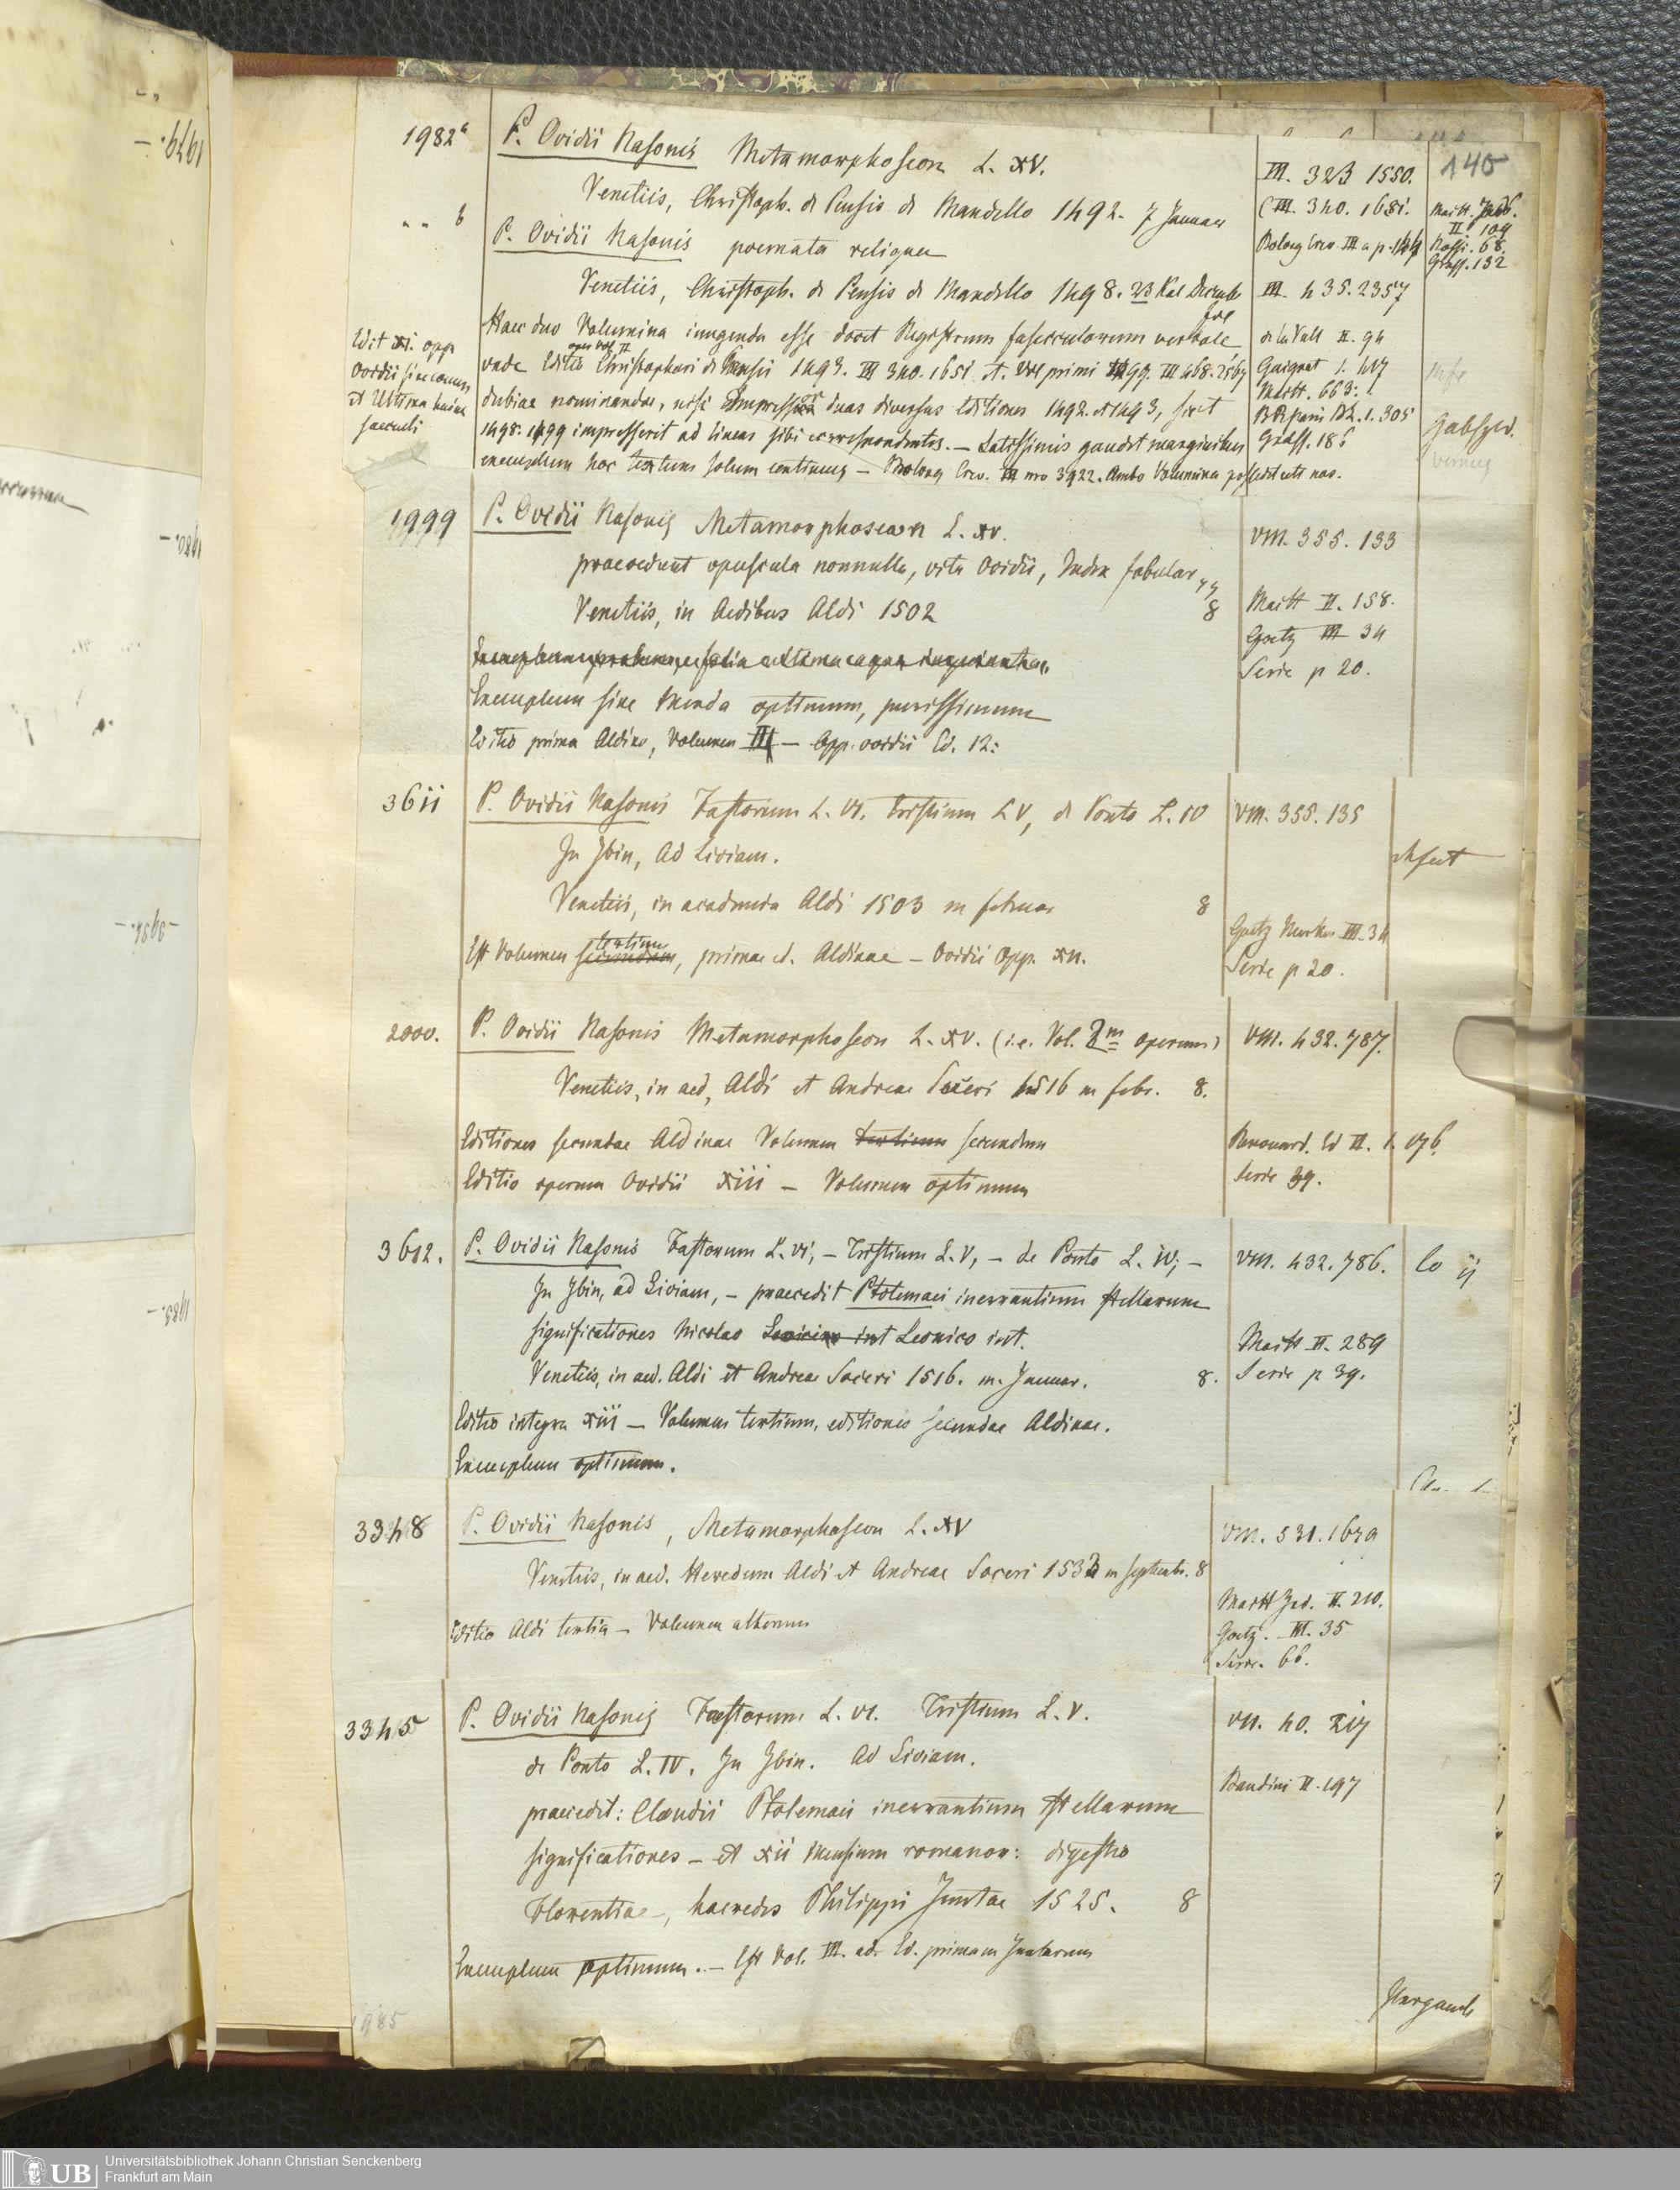 140
1982 a P. Ovidii Nasonis Metamorphoseon L. XV. III. 323 1550.
Venetiis, Christoph. de Pensis de Mandello 1492. 7 Januar III. 340. 1651. Maitt.
„ „ b P. Ovidii Nasonis poemata reliqua Bolong Crev. III a p. II 109
Venetiis, Christoph. de Pensis de Mandello 1498. 23 Kal Decemb fol III. 435. 2357 Rossi. 68. Graess. 132
Haec duo Volumina iungenda esse docet Registrum fasciculorum verbale de la Vall II. 94
Edit XI. opp. Ovidii sine comm, et Ultima huius saeculi
unde Editio Christophori de Pensis 1493. III 340. 1651 et Vol primi 1499. III 468. Gaignat 1. 447
dubiae nominandae, nisi duas diversas Editiones 1492. et 1493, sicut Maitt. 663.
1498. 1499 impresserit ad lineas sibi correspondentes. — Latissimis gaudet marginibus Graess. 186
exemplum hoc textum solum continens — Bolong Crev. III nro 3922. Ambo Volumina possedit ceti nao.
1999 P. Ovidii Nasonis Metamorphoseon L. XV. VIII. 355. 133
praecedunt opuscula nonnulla, vita Ovidii, Index fabular
Venetiis, in Aedibus Aldi 1502 8 Maitt II. 158.
Goetz III 34
Serie p 20.
Exemplum sine menda optimum, purissimum
Editio prima Aldina, Volumen III — Opp. ovidii Ed. 12:
3611 P. Ovidii Nasonis Fastorum L. VI. Tristium L V, de Ponto L. IV VIII. 355. 135
In Ibin, Ad Liviam.
Venetiis, in academia Aldi 1503 m februar 8
Goetz Merkw III. 34
Est Volumen secundum tertium, primae ed. Aldinae — Ovidii Opp. XII. Serie p 20.
2000. P. Ovidii Nasonis Metamorphoseon L. XV. (i.e. Vol. 2m operum) VIII. 432. 787.
Venetiis, in aed, Aldi et Andreae Soceri 1516 m febr. 8.
Editionis secundae Aldinae Volumen tertium secundum Renouard. Ed II. 1. 176.
Editio operum Ovidii XIII — Volumen optimum Serie 39.
3612. P. Ovidii Nasonis Fastorum L. VI, — Tristium L. V, — de Ponto L. IV; — VIII. 432. 786.
In Ibin, ad Liviam, — praecedit Ptolemaei inerrantium stellarum
significationes Nicolao Leonico int. Maitt II. 289
Venetiis, in aed. Aldi et Andreae Soceri 1516. m. Januar. 8. Serie p 39.
Editio integra XIII — Volumen tertium, editionis secundae Aldinae.
Exemplum optimum.
3348 P. Ovidii Nasonis, Metamorphoseon L. XV VIII. 531. 1679
Venetiis, in aed. Heredum Aldi et Andreae Soceri 1533 m septembr. 8
Maitt Ind. II. 210.
Editio Aldi tertia — Volumen alterum Goetz. III. 35
Serie. 66.
3345 P. Ovidii Nasonis Fastorum L. VI. Tristium L. V. VII. 40. 217
de Ponto L. IV. In Ibin. Ad Liviam.
praecedit: Claudii Ptolemaei inerrantium stellarum Bandini II. 197
significationes — et XII mensium romanor: digestio
Florentiae —, haeredes Philippi Juntae 1525. 8
Exemplum optimum. — Est Vol. III. ad. Ed. primam Juntarum
1985
UB Universitätsbibliothek Johann Christian Senckenberg
Frankfurt am Main